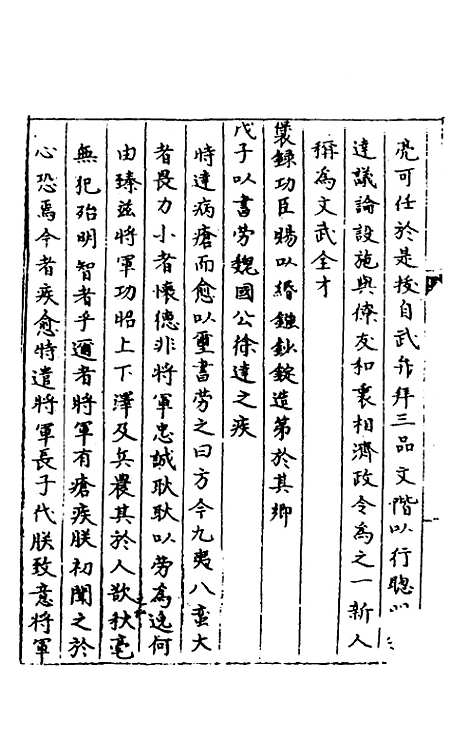 亮可任於是授自武弁拜三品文階以行聰
達議論設施與僚友和衷相濟政令為之一新人
稱為文武全才
襃錄功臣賜以綺鈔錠造第於其鄉
戊子以書勞魏國公徐達之疾
時達病瘡而愈以璽書勞之曰方今九夷八蠻大
者畏力小者懷德非將軍忠誠耿耿以勞為逸何
由臻玆將軍功昭上下澤及兵農其於人欲秋毫
無犯殆明智者乎邇者將軍有瘡疾朕初聞之於
心恐焉今者疾愈特遣將軍長子代朕致意將軍